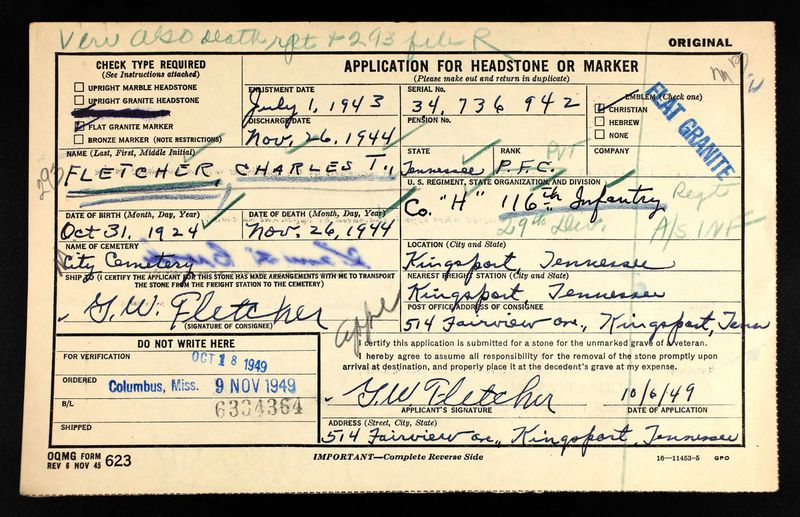 Veri also death rpt + 293 file R
ORIGINAL
CHECK TYPE REQUIRED
(See Instructions attached)
UPRIGHT MARBLE HEADSTONE
UPRIGHT GRANITE HEADSTONE
FLAT GRANITE MARKER
BRONZE MARKER (NOTE RESTRICTIONS)
APPLICATION FOR HEADSTONE OR MARKER
(Please make out and return in duplicate)
ENLISTMENT DATE
July 1, 1943
DISCHARGE DATE
Nov. 26, 1944
SERIAL NO.
34, 736 942
PENSION NO.
EMBLEM (Check one)
CHRISTIAN
HEBREW
NONE
FLAT GRANITE
NAME (Last, First, Middle Initial)
FLETCHER, CHARLES T.,
293
STATE
Tennessee
RANK
P.F.C.
PVT
COMPANY
U. S. REGIMENT, STATE ORGANIZATION, AND DIVISION
Co. "H" 116th Infantry
Regt
29th Div.
A/S INF
DATE OF BIRTH (Month, Day, Year)
Oct 31. 1924
DATE OF DEATH (Month, Day, Year)
Nov. 26, 1944
NAME OF CEMETERY
City Cemetery
LOCATION (City and State)
Kingsport, Tennessee
SHIP TO (I CERTIFY THE APPLICANT FOR THIS STONE HAS MADE ARRANGEMENTS WITH ME TO TRANSPORT
THE STONE FROM THE FREIGHT STATION TO THE CEMETERY)
G. W. Fletcher
(SIGNATURE OF CONSIGNEE)
NEAREST FREIGHT STATION (City and State)
Kingsport, Tennessee
POST OFFICE ADDRESS OF CONSIGNEE
514 Fairview ave., Kingsport, Tenn
appl
DO NOT WRITE HERE
FOR VERIFICATION
OCT 18 1949
ORDERED
Columbus, Miss. 9 NOV 1949
B/L
6334364
SHIPPED
I certify this application is submitted for a stone for the unmarked grave of a veteran.
I hereby agree to assume all responsibility for the removal of the stone promptly upon
arrival at destination, and properly place it at the decedent's grave at my expense.
G.W Fletcher
10/6/49
APPLICANT'S SIGNATURE
DATE OF APPLICATION
ADDRESS (Street, City, State)
514 Fairview ave., Kingsport, Tennessee
OQMG FORM
REV 6 NOV 45
623
IMPORTANT—Complete Reverse Side
16—11453-5 GPO